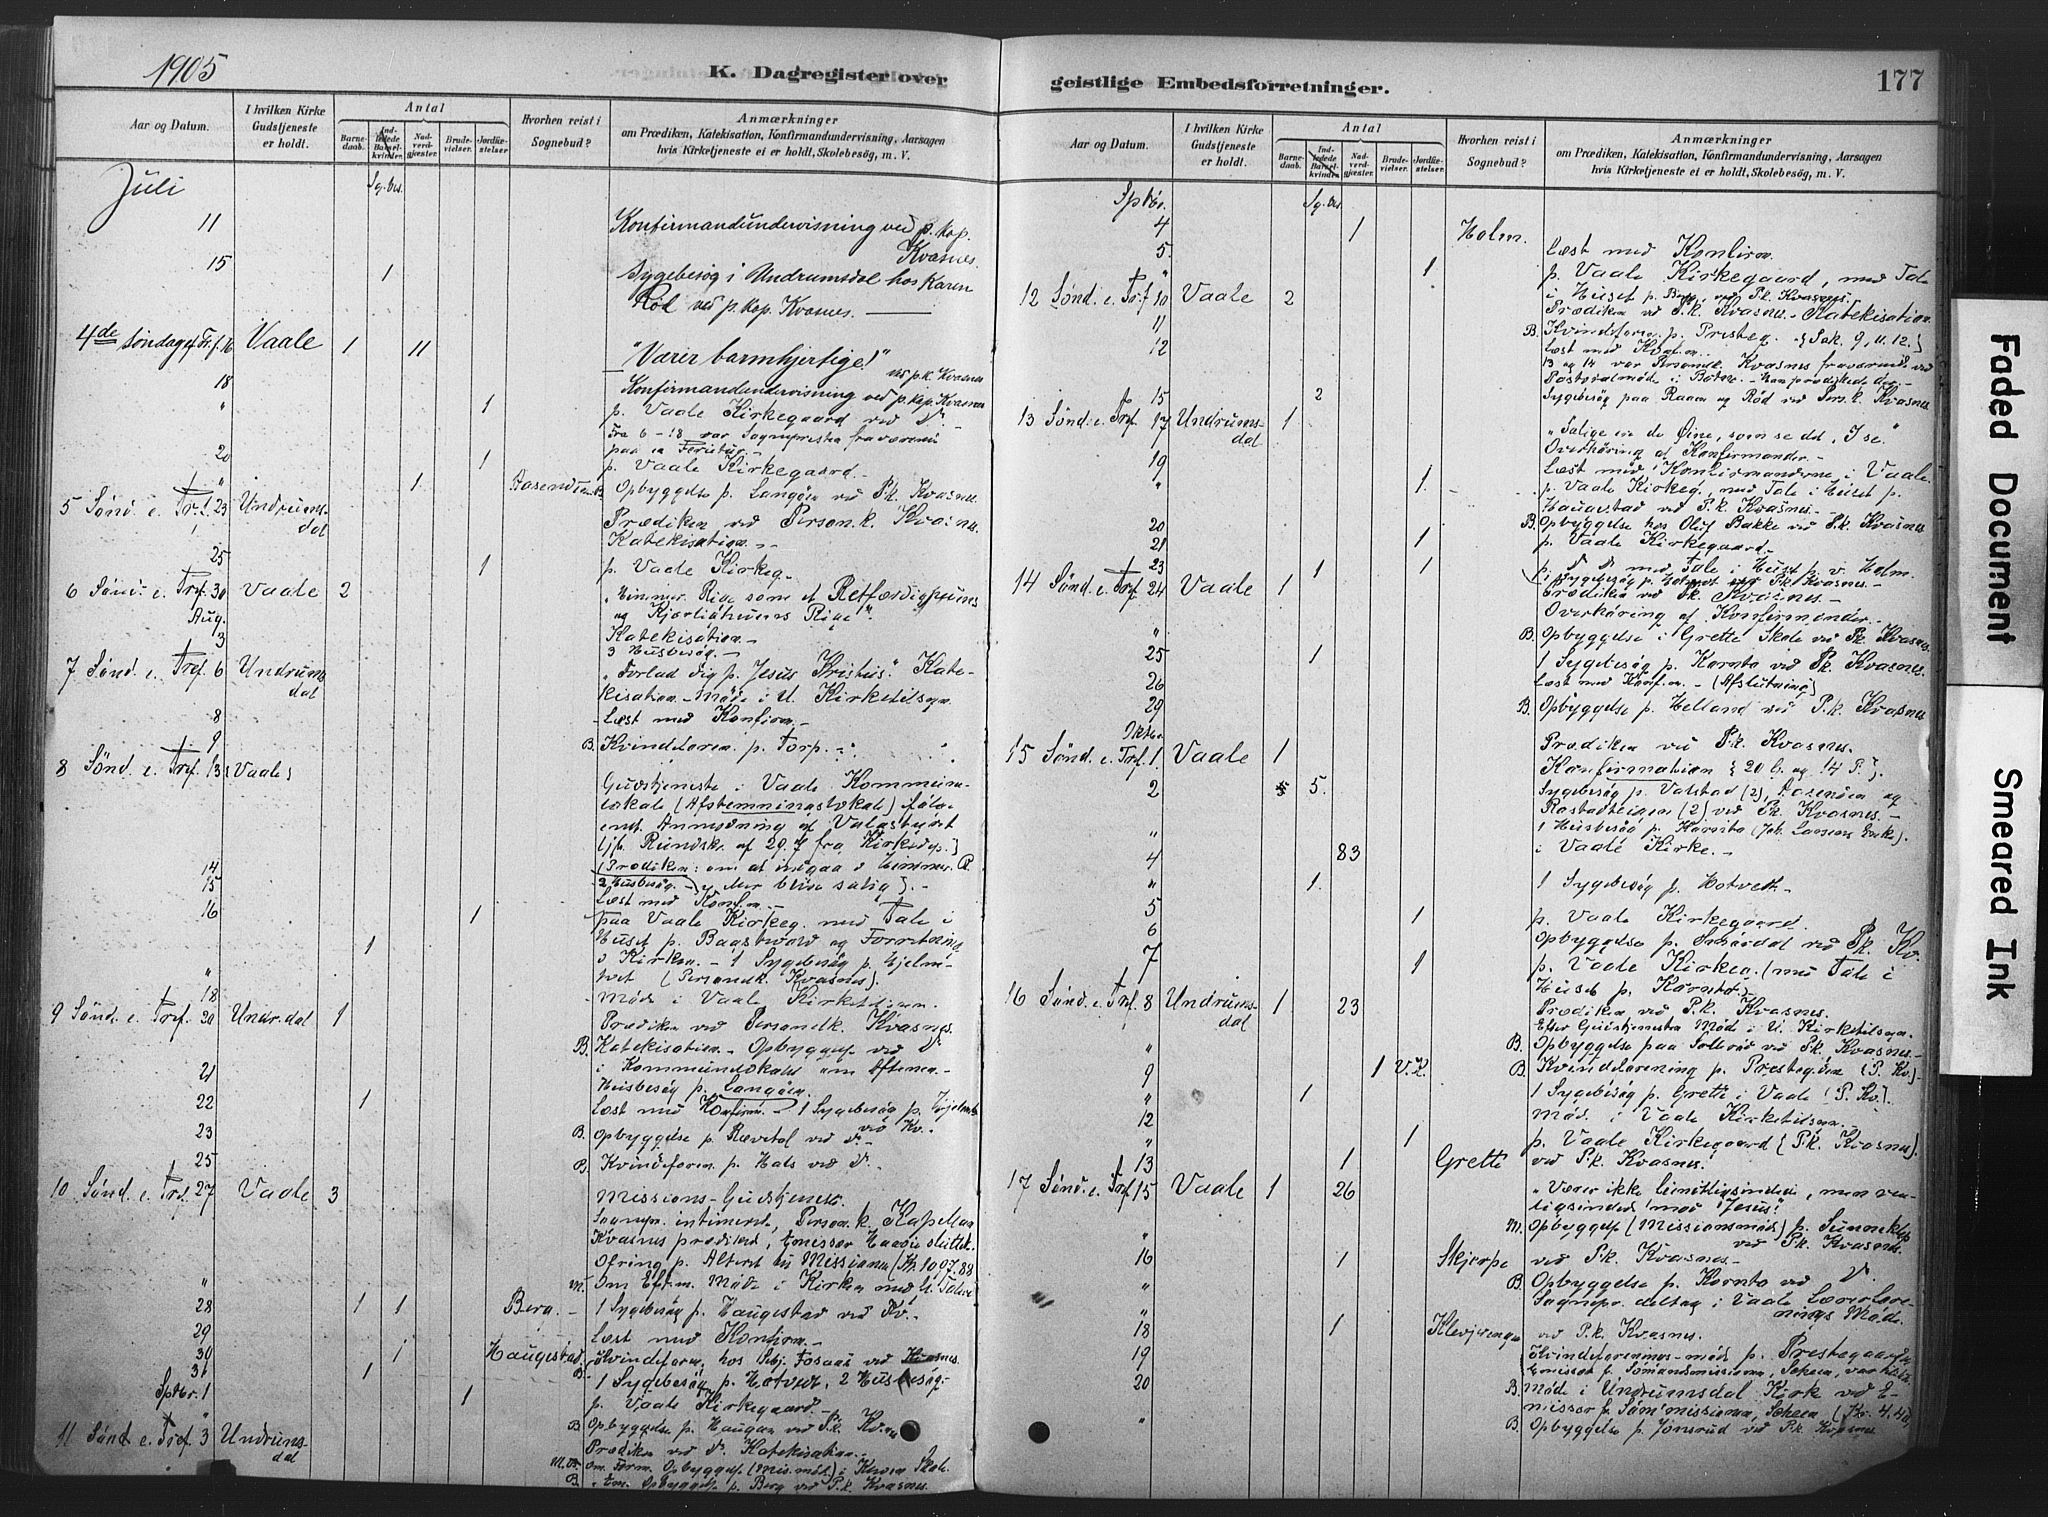 1905
K. Dagregister over
geistlige Embedsforretninger.
177
Aar og Datum.
I hvilken Kirke Gudstjeneste er holdt.
Antal
Barnedaab.
Indledede Barselkvinder.
Nadverdgjæster.
Brudevielser.
Jordfæstelser.
Hvorhen reist i Sognebud?
Anmærkninger
om Prædiken, Katekisation, Konfirmandundervisning, Aarsagen
hvis Kirketjeneste ei er holdt, Skolebesøg, m. V.
Juli
Sg. bes.
11 Konfirmandundervisning ved p. kap.
Kvasnes.
15 1 Sygebesøg i Undrumsdal hos Karen
Röd ved p. kap. Kvasnes.
4de Søndag e. Tr.f. 16 Vaale 1 11 "Værer barmhjertige!"
ved p. k. Kvasnes
18 Konfirmandundervisning ved p. kap. Kvasnes
" 1 p. Vaale Kirkegaard ved
Fra 6-18 var Sognepresten fraværende
paa en Ferietur.
20 1 p. Vaale Kirkegaard.
" 1 Aasenden Opbyggelse p. Langöen ved P.k. Kvasnes
5 Sönd. e. Tref. 23 Undrumsdal Prædiken ved Person.k. Kvasnes.
Katekisation.
25 1 p. Vaale Kirkeg.
6 Sönd. e. Tref. 30 Vaale 2 "Himmer. Rige som et Retfærdighedens
og Kjærlighedens Rige".
Aug. Katekisation.
3 3 Husbesøg.
7 Sönd. e. Tref. 6 Undrumsdal "Forlad dig p. Jesus Kristus". Kate-
kisation. Möde i U. Kirketilsyn
8 Læst med Konfirm.
9 B. Kvindeforen. p. Torp.
8 Sönd. e. Tref. 13 (Vaale) Gudstjeneste i Vaale Kommune-
lokale (Afstemningslokale) ifölge
Anmodning af Valgstyret
(jfr. Rundsk. af 29.7 fra Kirkedep.)
(Prædiken: om at indgaa i Himmer. R.
14 2 Husbesøg.
15 Læst med Konf.
16 1 paa Vaale Kirkeg. med Tale i
Huset p. Baastvold og Forretning
1 i Kirken. 1 Sygebesøg p. Hjelm-
tvet (Personelk. Kvasnes).
18 Möde i Vaale Kirketilsyn.
9 Sönd. e. Tref. 20 Undr.dal 1 Prædiken ved Personelk. Kvasnes.
B. Katekisation. Opbyggelse ved
i Kommunelokalet om Aftenen.
21 Husbesøg p. Langöen.
22 1 Læst med Konfirm. 1 Sygebesøg p. Hjelmtv.
ved Kv.
23 B. Opbyggelse p. Rævetal ved
25 B. Kvindeforen. p. Hals ved
10 Sönd. e. Tref. 27 Vaale 3 Missions-Gudstjeneste.
Sognepr. intimerede, Person.k. Kapellan
Kvasnes prædikede, Emissær Haavi sluttet.
Ofring p. Alteret til Missionen (Kr. 107.88
" M. Om Efterm. Möde i Kirken med
28 1 1 Berg. 1 Sygebesøg p. Haugestad ved Kv.
29 Læst med Konfirm.
30 1 Haugestad Kvindeforen. hos Sebj. Fosaas ved Kvasnes.
31 1 B. 1 Sygebesøg p. Hotvedt, 2 Husbesøg.
Sptbr. 1 1 p. Vaale Kirkegaard.
" B. Opbyggelse p. Haugan ved P.k. Kv.
11 Sönd. e. Tref. 3 Undrumsdal Prædiken ved Katekisation.
M.B. Om Form. Opbyggelse (Mis.möt.) i Kirken Skole.
B. Em. Opbyggelse p. Berg ved P.k. Kvasnes.
Aar og Datum.
I hvilken Kirke Gudstjeneste er holdt.
Antal
Barnedaab.
Indledede Barselkvinder.
Nadverdgjæster.
Brudevielser.
Jordfæstelser.
Hvorhen reist i Sognebud?
Anmærkninger
om Prædiken, Katekisation, Konfirmandundervisning, Aarsagen
hvis Kirketjeneste ei er holdt, Skolebesøg, m. V.
Sptbr.
Sg. bes.
4 1 Holm.
5. Læst med Konfirm.
" 1 p. Vaale Kirkegaard, med Tale
i Huset p. Berg, ved P.k. Kvasnes.
12 Sönd. e. Tref 10 Vaale 2 Prædiken ved P.k. Kvasnes. Katekisation.
11 B. Kvindeforen. p. Presteg. {Sak. 9, 11. 12.}
12 Læst med Konfirm.
13 og 14 var Personelk. Kvasnes fraværende ved
Pastoralmöde i Botne. Han prædikede der.
15 2 Sygebesøg paa Raaen og Röd ved Pers.k. Kvasnes
13 Sönd. e. Tref. 17 Undrumsdal 1 "Salige er de Øine, som se det, I se."
Overhöring af Konfirmander.
19 Læst med Konfirmanderne i Vaale.
" 1. p. Vaale Kirkeg., med Tale i Huset p.
Haugestad ved P.k. Kvasnes.
20 B. Opbyggelse hos Oluf Bakke ved P.k. Kvasnes.
21 1 p. Vaale Kirkegaard.
23 1 1 med Tale i Huset p. v. Holm.
1 Sygebesøg p. Holmet ved P.k. Kvasnes.
14 Sönd. e. Tref. 24 Vaale 1 Prædiken ved P.k. Kvasnes.
Overhöring af Konfirmander.
" B. Opbyggelse i Grette Skole ved P.k. Kvasnes
25 1 1 Sygebesøg p. Kornto ved P.k. Kvasnes.
26 Læst med Konfirm. (Afslutning)
29 B. Opbyggelse p. Helland ved P.k. Kvasnes
Oktbr.
15 Sönd. e. Tref. 1. Vaale 1 Prædiken ved P.k. Kvasnes.
Konfirmation {20 G. og 14 P.}.
2 5. Sygebesøg p. Valstad (2), Aasenden og
Rostadteigen (2) ved P.k. Kvasnes.
" 1 Husbesøg p. Kornto (Joh. Larsens Enke).
4 83 i Vaale Kirke.
" 1. 1 Sygebesøg p. Hotvedt.
5 1 p. Vaale Kirkegaard.
6 Opbyggelse p. Smördal ved P.k. Kv.
7 1 p. Vaale Kirkeg. (med Tale i
Huset p. Kornto).
16 Sönd. e. Tref. 8 Undrumsdal 1 23 Prædiken ved P.k. Kvasnes.
Efter Gudstjenesten Möde i U. Kirketilsyn.
" B. Opbyggelse paa Solerød ved P.k. Kvasnes.
9 1 V.K. B. Kvindeforening p. Prestegaarden (P. Kv.)
" 1 1 Sygebesøg p. Grette i Vaale (P. Kv.).
12 Möde i Vaale Kirketilsyn.
" 1 p. Vaale Kirkegaard (P.k. Kvasnes).
13 1 Grette ved P.k. Kvasnes.
17 Sönd. e. Tref. 15 Vaale 1 26 "Værer ikke
ligsindede med Jesus".
" M. Opbyggelse (Missionsmöde) p. Sunneklep
ved P.k. Kvasnes.
16 1 Skjerpe ved P.k. Kvasnes.
" B. Opbyggelse p. Kornto ved
" Sognepr. deltog i Vaale Lærerfore-
nings Möde.
18 1 Klevjeringen ved P.k. Kvasnes.
19 Kvindeforenings-möde p. Prestegaarden.
Emissær p. Sömandsmissionen, Soheim, var tilstede.
20 B. Möde i Undrumsdal Kirk ved E-
missær f. Söm'missionen, Soheim
" B. Opbyggelse p. Jonsrud ved P.k. Kvasnes
Faded Document
Smeared Ink